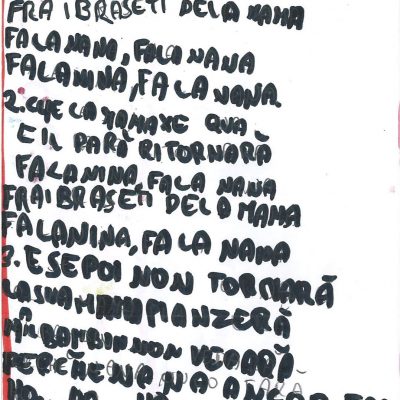 FRAIBRASETI DELA MAMA
FALANINA, FALA NANA
FALANINA, FA LA NANA.
2. CHE LA MAMAXE QUA
E IL PARÀ RITORNARÀ
FALANINA, FALA NANA
FRAIBRASETI DELA MAMA
FALANINA, FA LA NANA
3. E SE POI NON TORNARÀ
LA SUA MANZERÀ
MA BAMBIN NON VEGARÀ
PERCHE NANA ANCOR